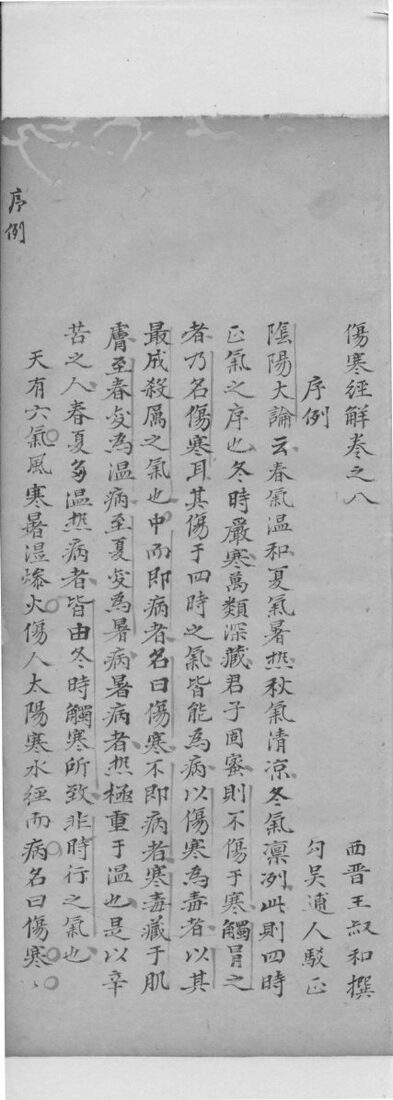 傷寒經解卷之八
西晉王叔和撰
序例
勾吳逋人駁正
陰陽大論云春氣溫和夏氣暑热秋氣清凉冬氣凛冽此則四時
正氣之序也冬時嚴寒萬類深藏君子固密則不傷于寒觸冒之
者乃名傷寒耳其傷于四時之氣皆能為病以傷寒為毒者以其
最成殺厲之氣也中而即病者名曰傷寒不即病者寒毒藏于肌
膚至春变為温病至夏变為暑病暑病者热極重于温也是以辛
苦之人春夏多温热病者皆由冬時觸寒所致非時行之氣也
天有六氣風寒暑湿燥火傷人太陽寒水經而病名曰傷寒
序例